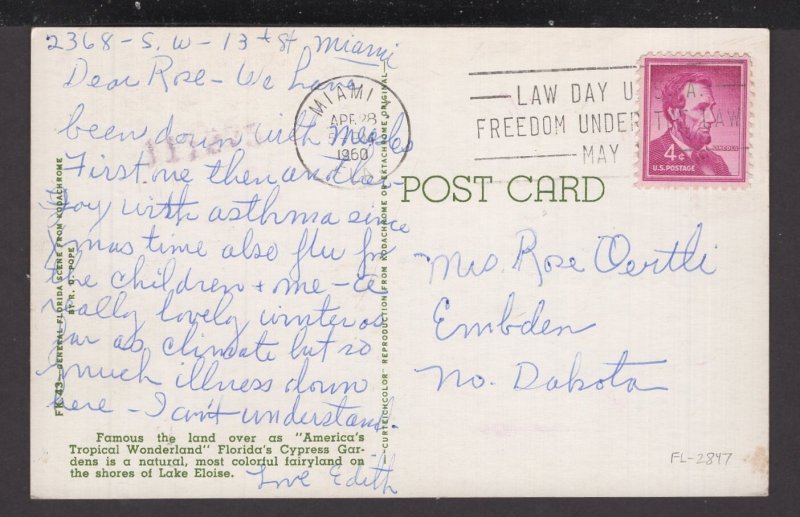 2368 - S. W - 13th St Miami
Dear Rose - We have
been down with Measles
First me then and the
Boy with asthma since
Xmas time also flu for
the children + me - a
really lovely winter as
far as climate but so
much illness down
here - I can't understand.
Love Edith
Famous the land over as "America's
Tropical Wonderland" Florida's Cypress Gar-
dens is a natural, most colorful fairyland on
the shores of Lake Eloise.
FK 43—GENERAL FLORIDA SCENE FROM KODACHROME
BY R. D. POPE
—CURTEICHCOLOR® REPRODUCTION FROM KODACHROME OR EKTACHROME ORIGINAL—
MIAMI
APR 28
1960
LAW DAY U.S.A.
FREEDOM UNDER THE LAW
MAY
LINCOLN
4¢
U.S. POSTAGE
POST CARD
Mrs Rose Oertli
Embden
No. Dakota
FL-2847